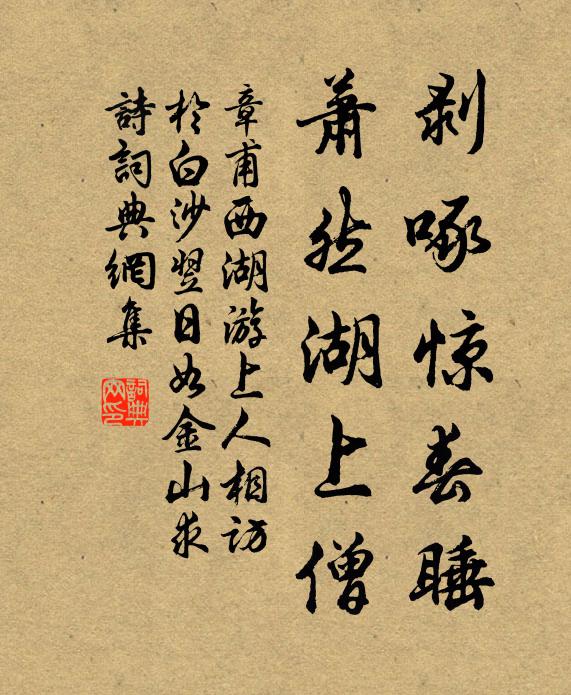 剥啄惊春睡
萧然湖上僧
章甫西湖游上人相访
於白沙翌日如金山求
詩詞典網集
詞典
网印